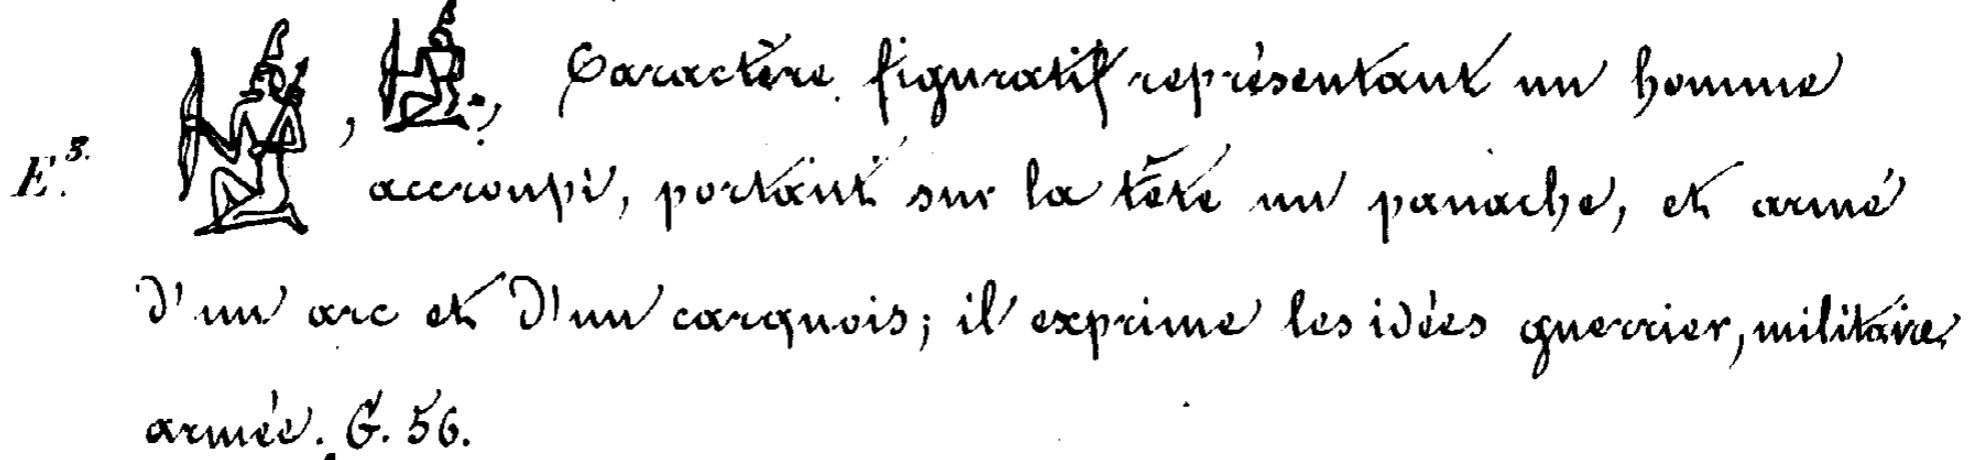 𓀎, 𓀎, Caractère figuratif représentant un homme
E.³· accroupi, portant sur la tête un panache, et armé
d'un arc et d'un carquois; il exprime les idées guerrier, militaire,
armée. G. 56.